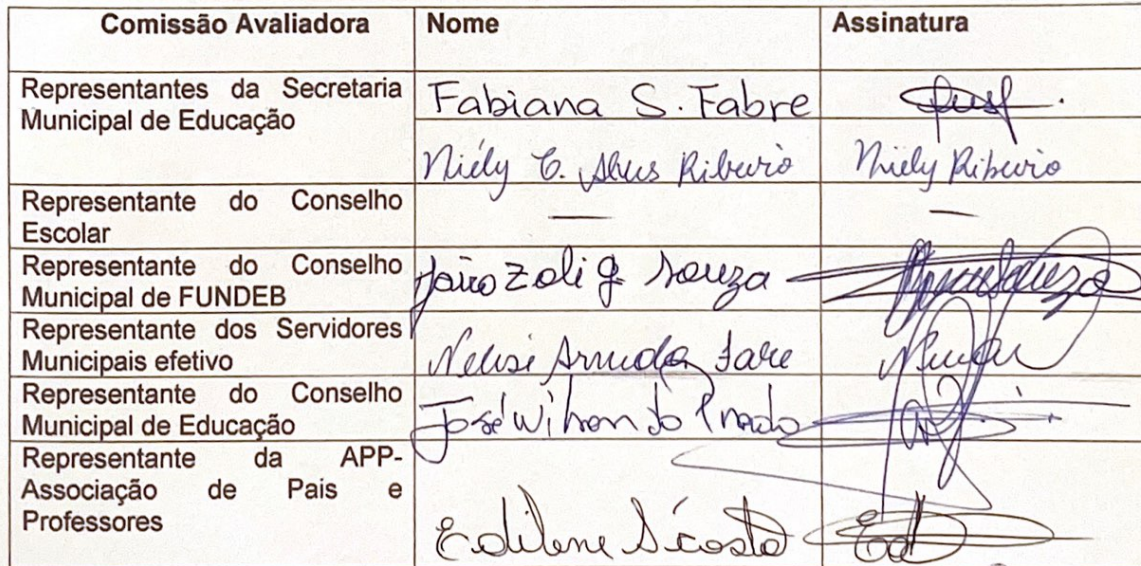 Comissão Avaliadora Nome Assinatura
Representantes da Secretaria
Municipal de Educação
Fabiana S. Fabre
Niély C. Alves Ribeiro Niely Ribeiro
Representante do Conselho
Escolar
— —
Representante do Conselho
Municipal de FUNDEB
Jairo Zoli Souza
Representante dos Servidores
Municipais efetivo
Arruda
Representante do Conselho
Municipal de Educação
José Wilson do Prado
Representante da APP-
Associação de Pais e
Professores
Edilene S. Costa